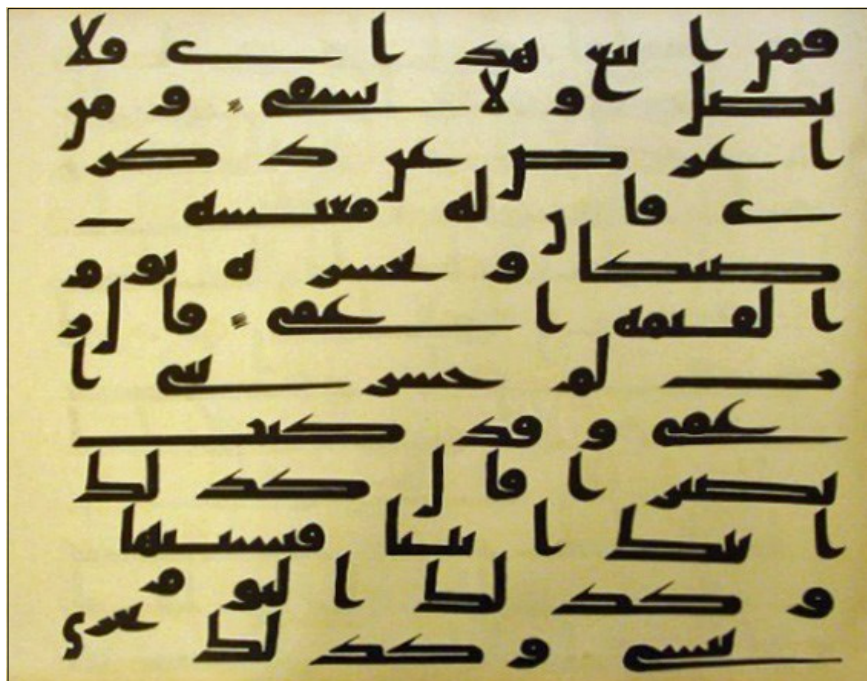 فمن اتبع هداي فلا
يضل ولا يشقى ومن
اعرض عن ذكر
ي فان له معيشه
ضنكا ونحشره يوم
القيمه اعمى قال ر
ب لم حشرتني ا
عمى وقد كنت
بصيرا قال كذلك
اتتك ايتنا فنسيتها
وكذلك اليوم
تنسى وكذلك نجزي